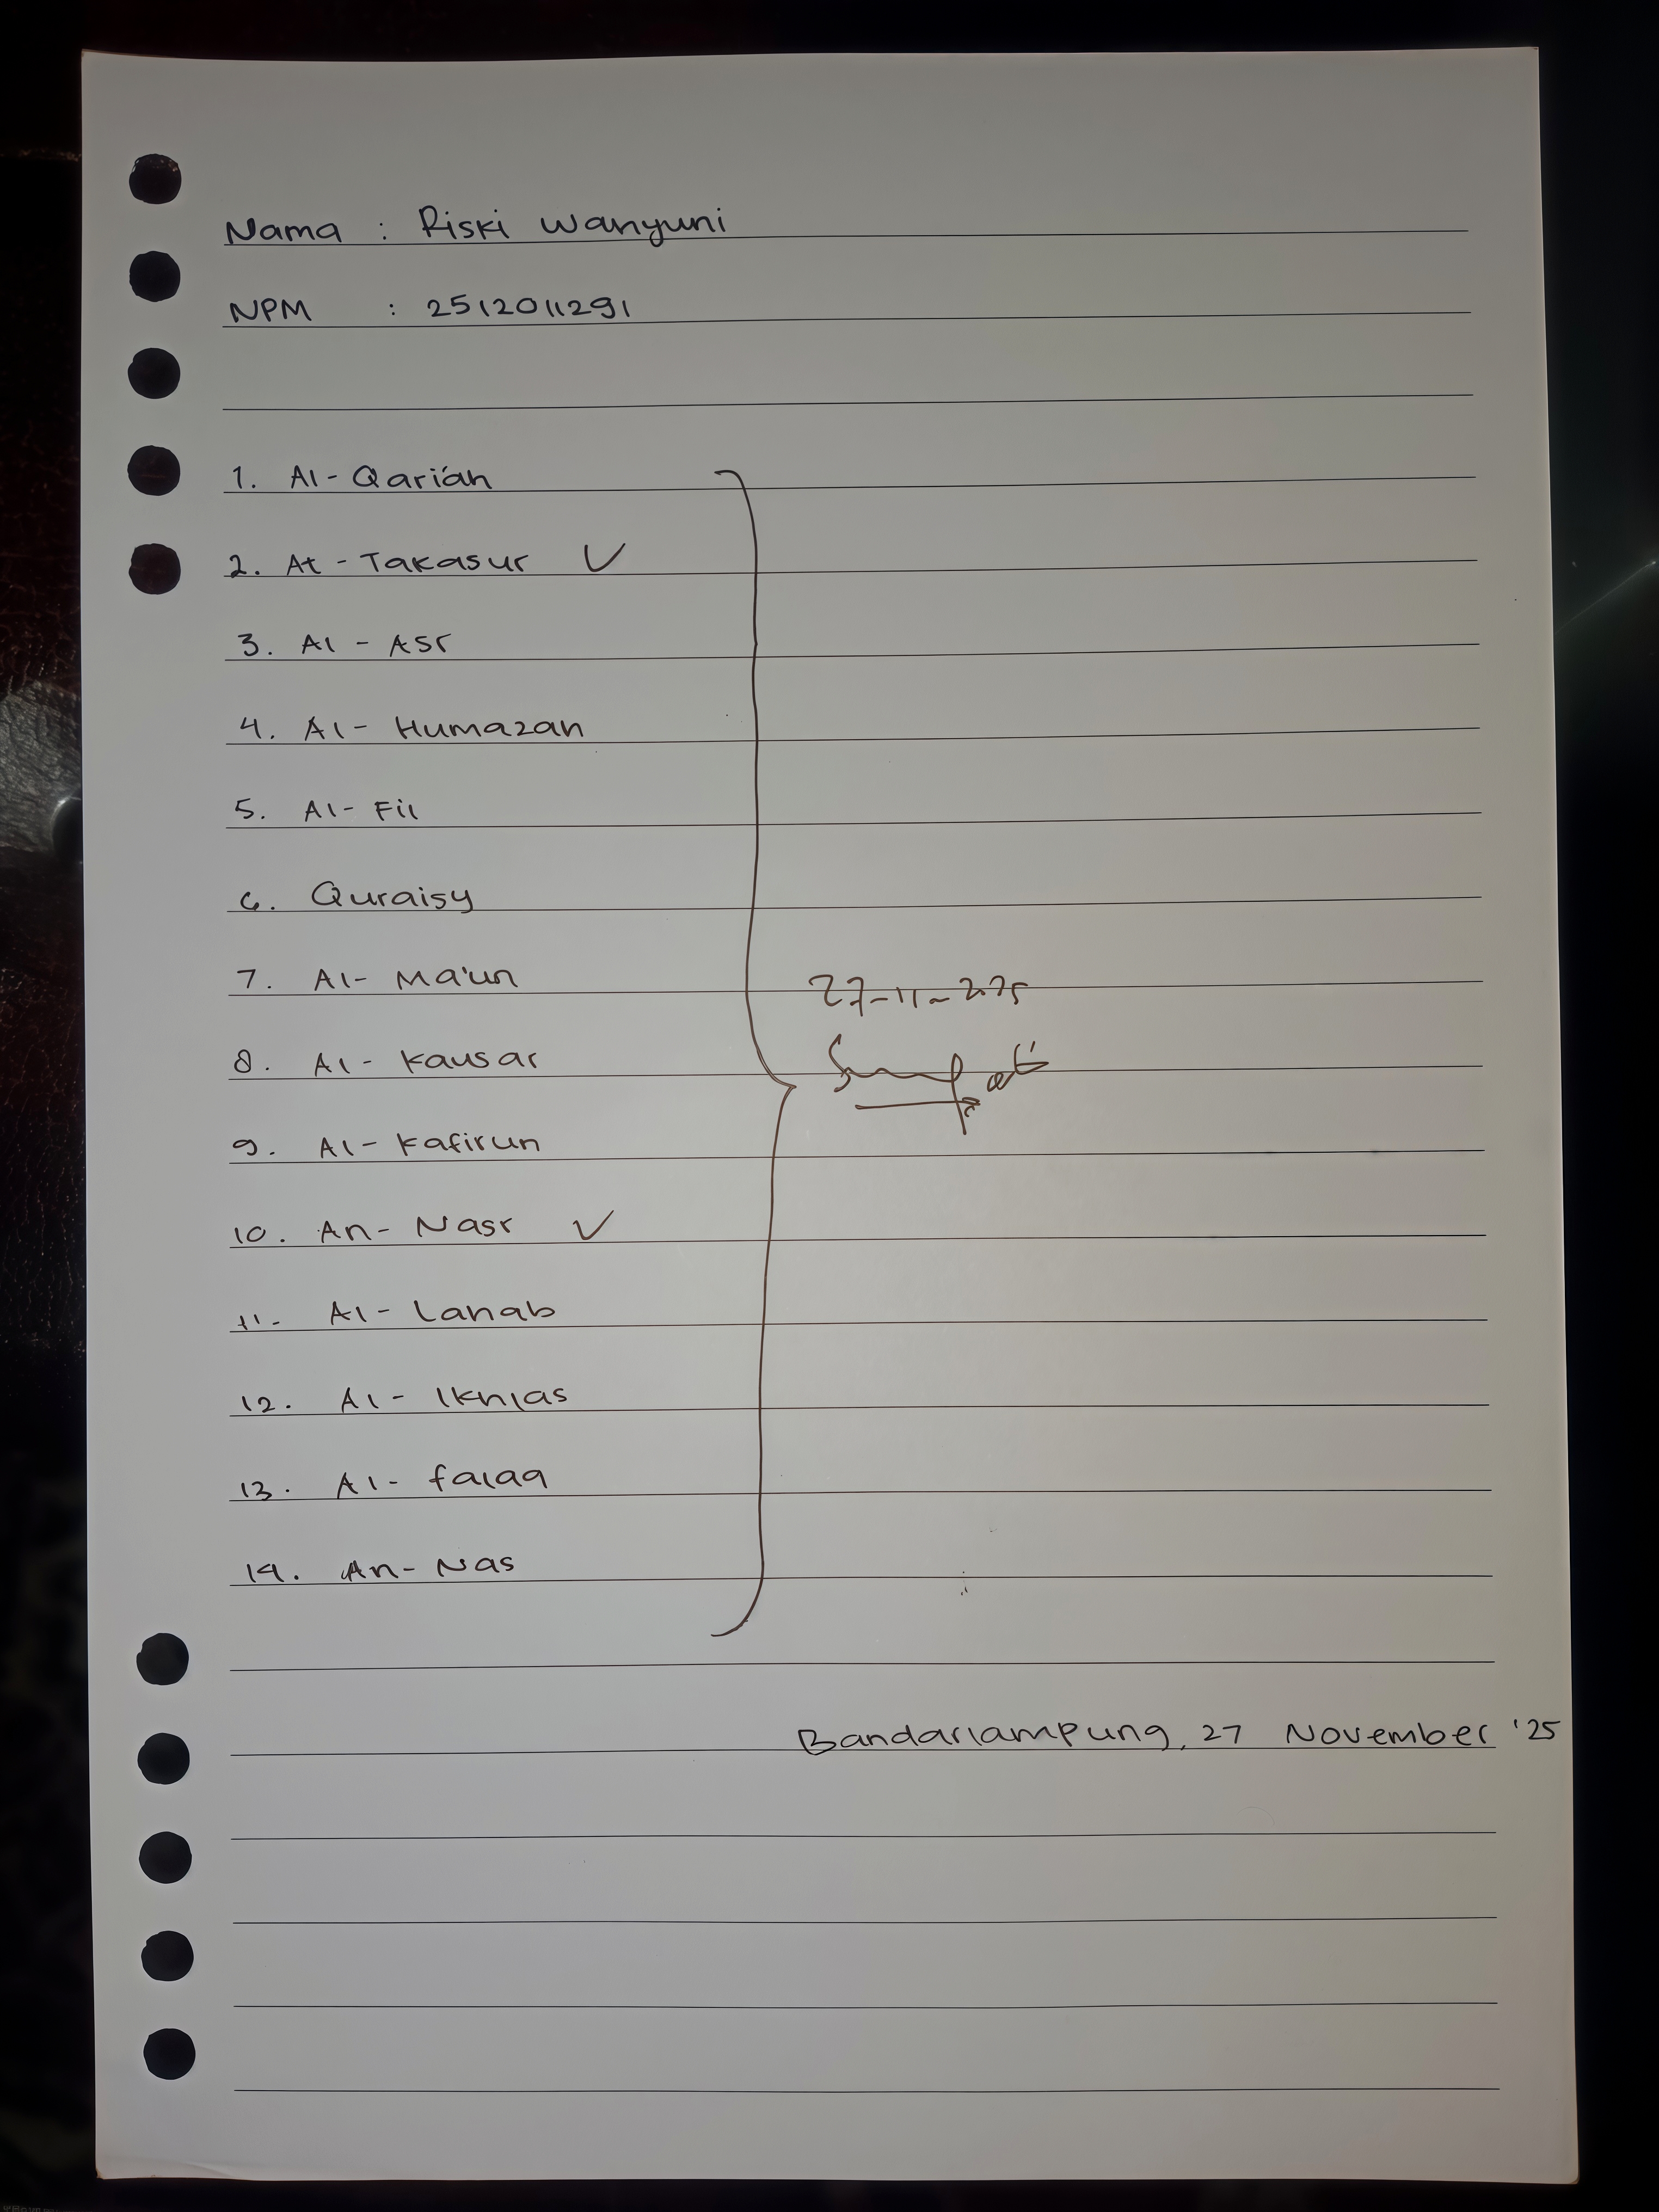 Nama : Riski Wahyuni
NPM : 2512011291
1. Al-Qari'ah
2. At-Takasur ✓
3. Al-Asr
4. Al-Humazah
5. Al-Fil
6. Quraisy
7. Al-Ma'un
27-11-2025
8. Al-Kausar
9. Al-Kafirun
10. An-Nasr ✓
11. Al-Lahab
12. Al-Ikhlas
13. Al-falaq
14. An-Nas
Bandarlampung, 27 November '25